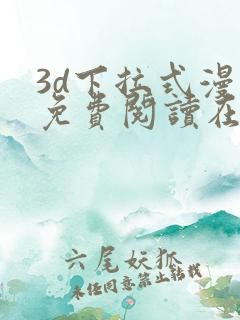 3d下拉式漫
免費閱讀在
六尾妖狐
未经同意禁止转载